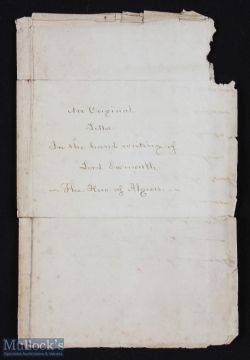 An Original
Letter
In the hand writing of
Lord Exmouth
The Hero of Algiers
Mullock's
Specialist Auctioneers & Valuers